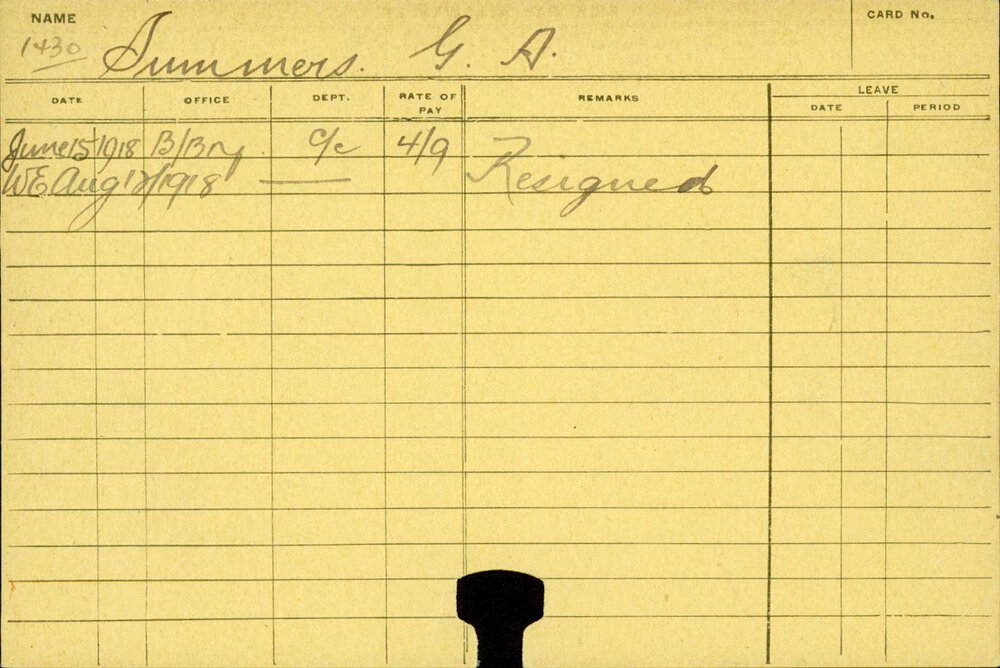 NAME
CARD No.
1430 Summers. G. A.
DATE OFFICE DEPT. RATE OF PAY REMARKS LEAVE
DATE PERIOD
June 15 1918 B/Bry C/c 4/9
WE Aug 1918 — Resigned